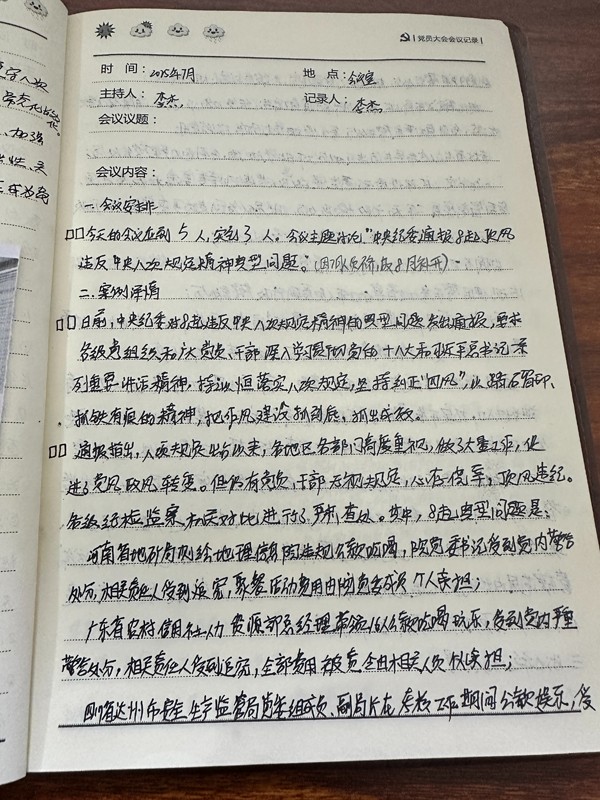 党员大会会议记录
时 间：2015年7月 地 点：会议室
主持人：李杰 记录人：李杰
会议议题：
会议内容：
一、会议安排
今天的会议应到5人，实到3人。会议主题讨论"中央纪委通报8起顶风
违反中央八项规定精神典型问题。"（因 8月召开）
二、案例通报
日前，中央纪委对8起违反中央八项规定精神的典型问题发出通报，要求
各级党组织和广大党员、干部深入学习贯彻党的十八大和习近平总书记系
列重要讲话精神，持之以恒落实八项规定，坚持纠正"四风"，以踏石留印、
抓铁有痕的精神，把作风建设抓到底、抓出成效。
通报指出，八项规定出台以来，各地区各部门高度重视，做了大量工作，促
进了党风政风转变。但仍有党员、干部无视规定，心存侥幸，顶风违纪。
各级纪检监察机关对此进行了严肃查处。其中，8起典型问题是：
河南省地矿局测绘地理信息院违规公款吃喝，院党委书记受到党内警告
处分，相关责任人受到追究，聚餐活动费用由院党委成员个人承担；
广东省农村信用社人力资源部总经理带领16人公款吃喝玩乐，受到党内严重
警告处分，相关责任人受到追究，全部费用被责令由相关人员个人承担；
四川省达州市安全生产监管局党委组成员、副局长在考核工作期间公款娱乐，受